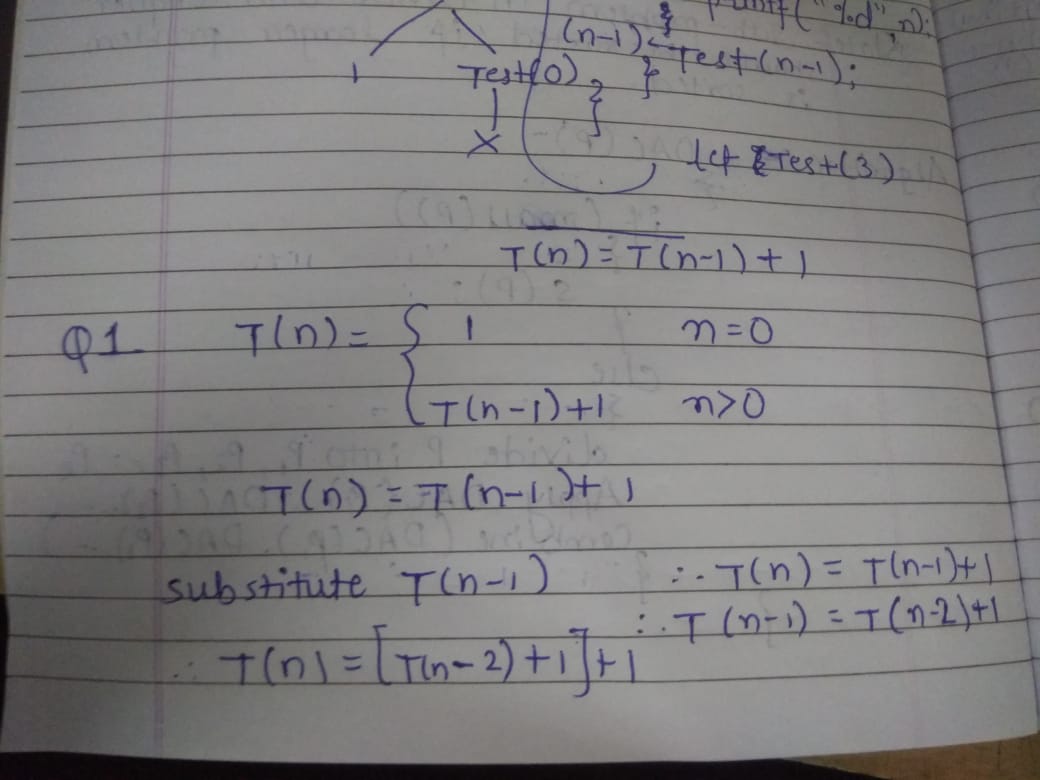 printf("%d",n);
(n-1)
Test(n-1);
}
1 Test(0)
}
}
X
let Test(3)
T(n) = T(n-1) + 1
Q1 T(n) = { 1 n=0
T(n-1)+1 n>0
T(n) = T(n-1)+1
substitute T(n-1) ∴ T(n) = T(n-1)+1
∴ T(n-1) = T(n-2)+1
∴ T(n) = [T(n-2)+1]+1